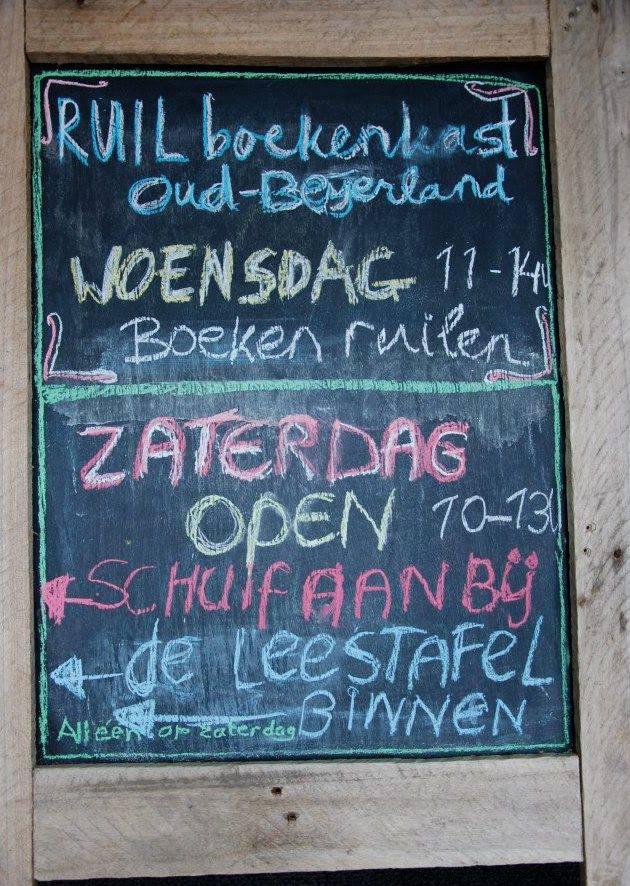 RUIL boekenkast
Oud-Beijerland
WOENSDAG 11-14u
Boeken ruilen
ZATERDAG
OPEN 10-13u
SCHUIF AAN Bij
de LEESTAFEL
BINNEN
Alléén op zaterdag